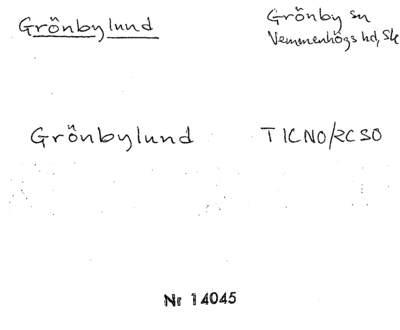 Grönbylund
Grönby sn
Vemmenhögs hd, Sk
Grönbylund
T1CNO/2CSO
Nr 14045